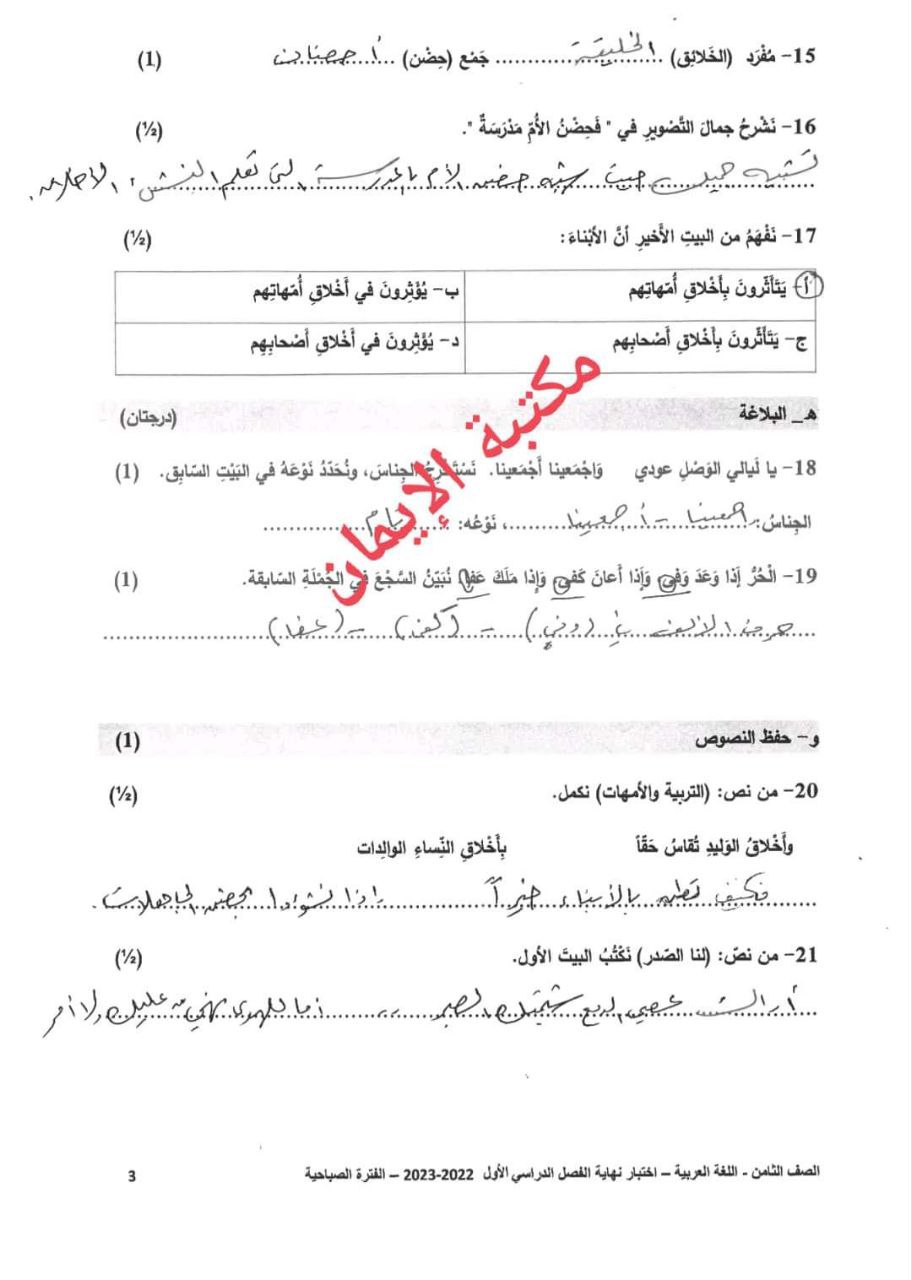 15- مُفْرَد (الخَلائِق) الخليقة جَمْع (حِضْن) أحضان (1)
16- نَشْرحُ جمالَ التَّصْويرِ في " فَحِضْنُ الأُمِّ مَدْرَسَةٌ ". (½)
تشبيه جميل حيث شبه حضن الأم بالمدرسة التي تعلم النشء الأخلاق.
17- نَفْهَمُ من البيتِ الأخيرِ أنَّ الأبْناءَ: (½)
أ- يَتَأثّرونَ بِأخْلاقِ أُمّهاتِهم ب- يُؤْثِرونَ في أخْلاقِ أُمّهاتِهم
ج- يَتَأثّرونَ بِأخْلاقِ أصْحابِهم د- يُؤْثِرونَ في أخْلاقِ أصْحابِهِم
مكتبة الإيمان
هـ_ البلاغة (درجتان)
18- يا لَيالي الوَصْلِ عودي وَاجْمَعينا أجْمَعينا. نَسْتَخْرِجُ الجِناسَ، ونُحَدّدُ نَوْعَهُ في البَيْتِ السّابِق. (1)
الجِناسُ: اجمعينا - أجمعينا ، نَوْعُه: تام
19- الْحُرُّ إذا وَعَدَ وَفى وَإذا أعانَ كَفى وَإذا مَلَكَ عَفا نُبَيّنُ السَّجْعَ في الجُمْلَةِ السّابقة. (1)
حرف الألف في (وفى) - (كفى) - (عفا)
و- حفظ النصوص (1)
20- من نص: (التربية والأمهات) نكمل. (½)
وأَخْلاقُ الوَليدِ تُقاسُ حَقّاً بِأَخْلاقِ النِّساءِ الوالِداتِ
فكيف تظن بالأبناء خيراً إذا نشؤوا بحضن الجاهلات.
21- من نصّ: (لنا الصّدر) نَكْتُبُ البيتَ الأول. (½)
أراك عصي الدمع شيمتك الصبر أما للهوى نهي عليك ولا أمر
الصف الثامن - اللغة العربية – اختبار نهاية الفصل الدراسي الأول 2022-2023 – الفترة الصباحية 3